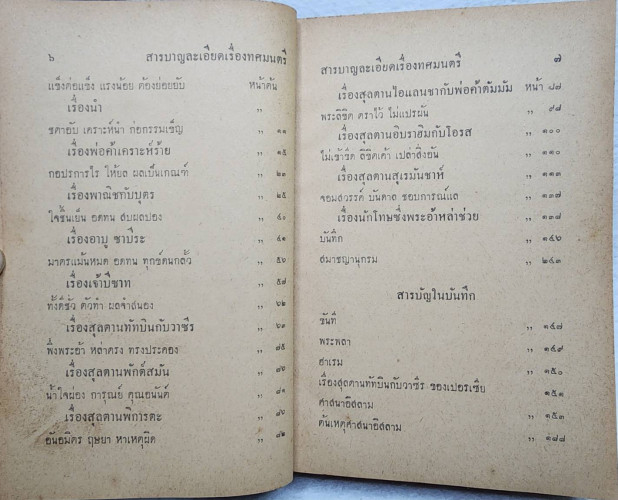 ๖ สารบาญละเอียดเรื่องทศมนตรี
แข็งต่อแข็ง แรงน้อย ต้องย่อยยับ หน้าต้น
เรื่องนำ ,,
ชตาอับ เคราะห์นำ ก่อกรรมเข็ญ ,, ๑๑
เรื่องพ่อค้าเคราะห์ร้าย ,, ๑๕
กอปรการไร ให้ยล ผลเป็นเกณฑ์ ,, ๒๓
เรื่องพาณิชกับบุตร ,, ๒๕
ใจชื้นเย็น อดทน สบผลปอง ,, ๔๐
เรื่องอาบู ซาบีระ ,, ๔๑
มาตรแม้นหมด อดทน ทุกข์ดนกลั้ว ,, ๕๖
เรื่องเจ้าบีซาท ,, ๕๗
ทั้งดีชั่ว ตัวทำ ผลจำสนอง ,, ๖๒
เรื่องสุลตานทัทบินกับวาซีร ,, ๖๓
พึ่งพระอ้า หล่าตรง ทรงประคอง ,, ๗๕
เรื่องสุลตานพักต์สมัน ,, ๗๖
น้ำใจผ่อง การุณย์ คุณอนันต์ ,, ๘๑
เรื่องสุลตานพิการตะ ,, ๘๖
อันอมิตร ฤษยา หาเหตุผิด ,, ๘๒
สารบาญละเอียดเรื่องทศมนตรี ๗
เรื่องสุลตานไอแลนชากับพ่อค้าตัมมัม หน้า ๘๗
พระลิขิต ตราไว้ ไม่แปรผัน ,, ๙๘
เรื่องสุลตานอิบราฮิมกับโอรส ,, ๑๐๐
ไม่เข้าขีด ลิขิตเค้า เปล่าสิ่งยัน ,, ๑๑๐
เรื่องสุลตานสุเรมันชาห์ ,, ๑๑๓
จอมสวรรค์ บันดาล ชอบการณ์แล ,, ๑๓๗
เรื่องนักโทษซึ่งพระอ้าหล่าช่วย ,, ๑๓๘
บันทึก ,, ๑๔๖
สมาชญานุกรม ,, ๒๔๓
สารบัญในบันทึก
ขันที ,, ๑๔๗
พระพลา ,, ๑๔๙
ฮาเรม ,, ๑๕๐
เรื่องสุลตานทัทบินกับวาซีร ของเปอรเซีย ,, ๑๕๑
ศาสนาอิสลาม ,, ๑๕๓
ต้นเหตุศาสนาอิสลาม ,, ๑๗๘